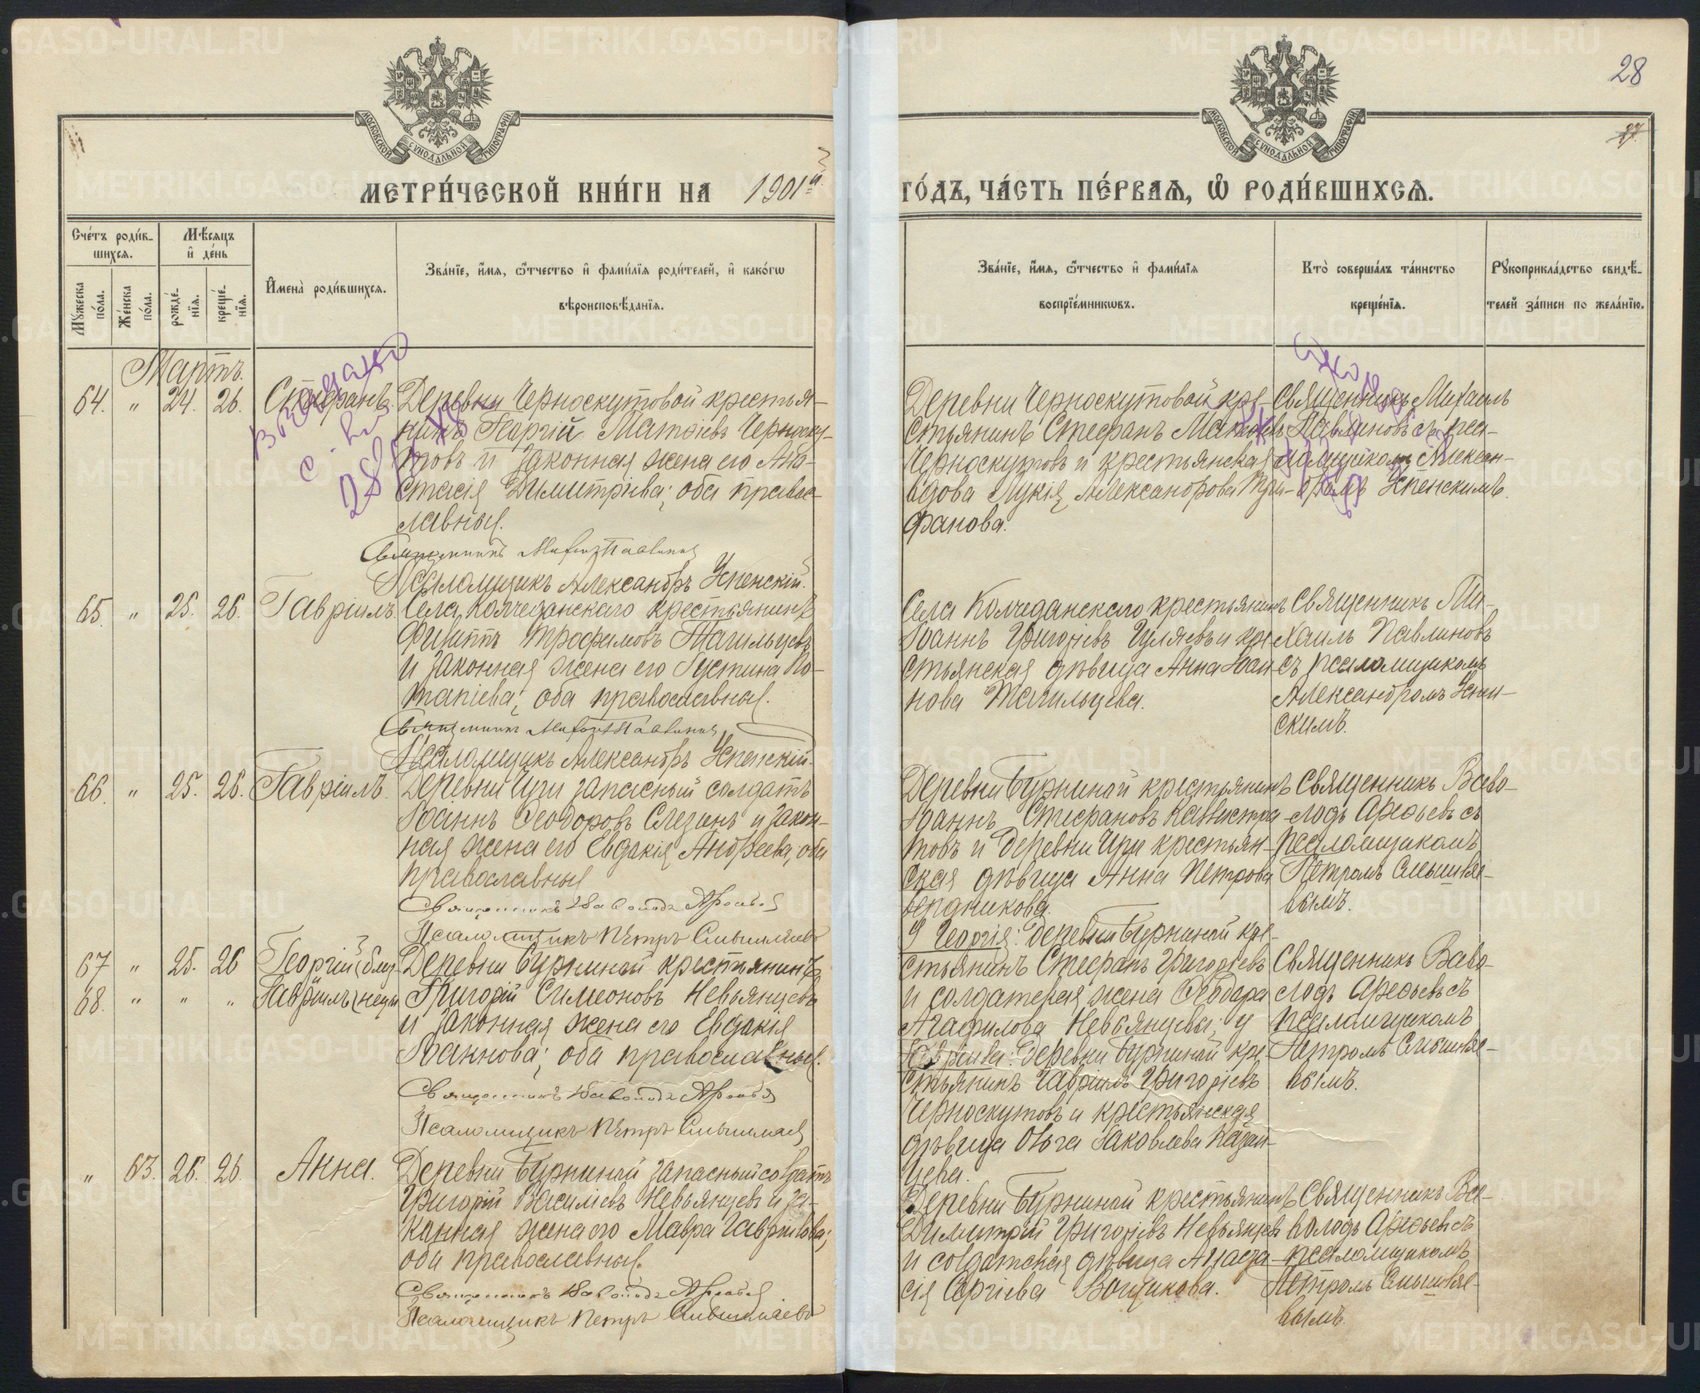 28
27
МОСКОВСКОЙ СѴНОДАЛЬНОЙ ТИПОГРАФІИ
МОСКОВСКОЙ СѴНОДАЛЬНОЙ ТИПОГРАФІИ
МЕТРИ́ЧЕСКОЙ КНИ́ГИ НА 1901й
ГО́ДЪ, ЧА́СТЬ ПЕ́РВАЯ, Ѽ РОДИ́ВШИХСЯ.
Сче́тъ роди́в-
шихся.
Мѣсяцъ
и де́нь
Мꙋжеска
по́ла.
Же́нска
по́ла.
рожде́-
нїя.
креще́-
нїя.
Имена̀ роди́вшихся.
Зва́нїе, имя, ѻтчество и фами́лїя роди́телей, и како́гѡ
вѣроисповѣданїя.
Зва́нїе, имя, ѻтчество и фами́лїя
воспрїе́мникѡвъ.
Кто̀ соверша́лъ та́инство
креще́нїя.
Рꙋкоприкла́дство свидѣ-
телей за́писи по жела́нїю.
Мартъ.
64. " 24. 26. Стефанъ.
Деревни Черноскутовой крестья-
нинъ Георгій Матѳіевъ Черноску-
товъ и законная жена его Ана-
стасія Димитріева; оба правос-
лавные.
Священникъ Михаилъ Павлиновъ
Псаломщикъ Александръ Успенскій.
Деревни Черноскутовой кре-
стьянинъ Стефанъ
Черноскутовъ и крестьянская
вдова Лукія Александрова Три-
фанова.
Священникъ Михаилъ
Павлиновъ съ пса-
ломщикомъ Алексан-
дромъ Успенскимъ.
выдано
65. " 25. 26. Гавріилъ.
Села Колчеданскаго крестьянинъ
Филиппъ Трофимовъ Тагильцевъ
и законная жена его Іустина По-
тапіева; оба православные.
Священникъ Михаилъ Павлиновъ
Псаломщикъ Александръ Успенскій.
Села Колчеданскаго крестьянинъ
Іоаннъ Григоріевъ Гуляевъ и кре-
стьянская дѣвица Анна Іоан-
нова Тагильцева.
Священникъ Ми-
хаилъ Павлиновъ
съ псаломщикомъ
Александромъ Успен-
скимъ.
66. " 25. 26. Гавріилъ.
Деревни запасный солдатъ
Іоаннъ Ѳеодоровъ Слезинъ и закон-
ная жена его Евдокія Андреева, оба
православные
Священникъ Всеволодъ Арефьевъ
Псаломщикъ Петръ Смышляевъ
Деревни Бурниной крестьянинъ
Іоаннъ Стефановъ
товъ и деревни крестьян-
ская дѣвица Анна Петрова
Бердникова.
Священникъ Всево-
лодъ Арефьевъ съ
псаломщикомъ
Петромъ Смышляе-
вымъ.
67 " 25. 26 Георгій (близ-
68. " " " Гавріилъ (нецы
Деревни Бурниной крестьянинъ
Григорій Симеоновъ Невьянцевъ
и законная жена его Евдокія
Іоаннова; оба православные.
Священникъ Всеволодъ Арефьевъ
Псаломщикъ Петръ Смышляевъ
У Георгія: деревни Бурниной кре-
стьянинъ Стефанъ Григорьевъ
и солдатская жена Ѳеодора
Агафилова Невьянцевы, у
Гавріила: деревни Бурниной кре-
стьянинъ Гавріилъ Григоріевъ
Черноскутовъ и крестьянская
дѣвица Ольга Іаковлева Казан-
цева.
Священникъ Всево-
лодъ Арефьевъ съ
псаломщикомъ
Петромъ Смышляе-
вымъ.
" 63. 26. 26 Анна.
Деревни Бурниной запасный солдатъ
Григорій Василіевъ Невьянцевъ и за-
конная жена его Мавра Гавріилова;
оба православные.
Священникъ Всеволодъ Арефьевъ
Псаломщикъ Петръ Смышляевъ
Деревни Бурниной крестьянинъ
Димитрій Григоріевъ Невьянцевъ
и солдатская дѣвица Анаста-
сія Сергіева Вощикова.
Священникъ Все-
володъ Арефьевъ съ
псаломщикомъ
Петромъ Смышляе-
вымъ.
METRIKI.GASO-URAL.RU